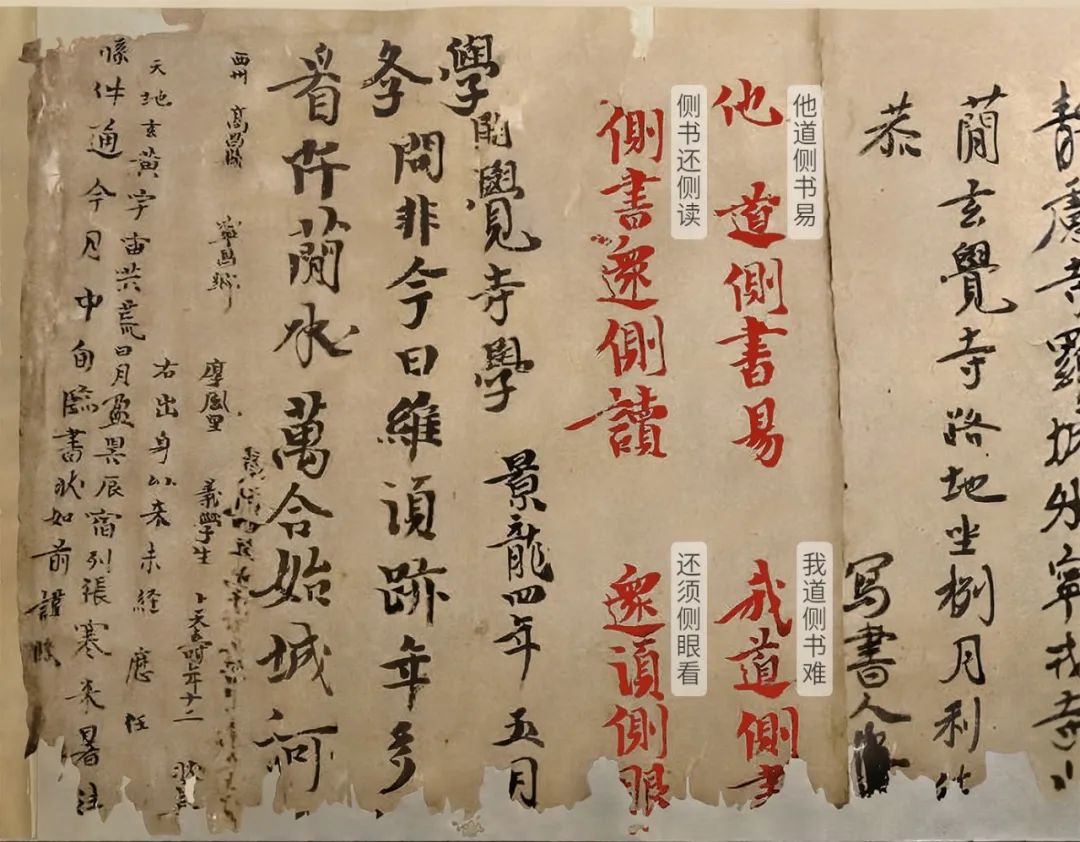 蕳玄覺寺路地坐捌月利
恭
寫書人
他道側書易 我道側書
他道侧书易
我道侧书难
側書還側讀 還須側眼
侧书还侧读
还须侧眼看
覺寺學 景龍四年五月
學
問非今日維須跡年多
看阡蕳水萬合始城河
西州 高昌縣 寧昌鄉 厚風里 義學生 卜天壽年十二
右出身以來未経歷任
天地玄黄宇宙洪荒日月盈昃辰宿列張寒来暑
牒件通今月中旬臨書狀如前謹牒